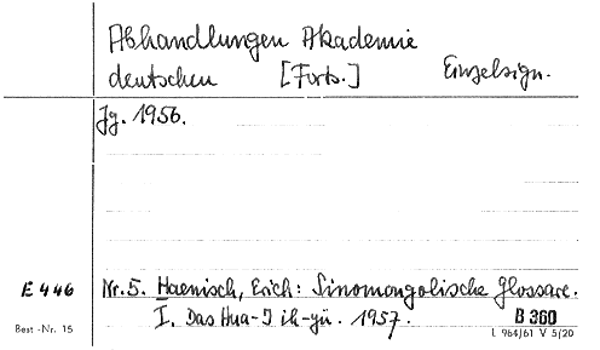 Abhandlungen Akademie
deutschen [Forts.] Einzelsign.
Jg. 1956.
E 446 Nr. 5. Haenisch, Erich: Sinomongolische Glossare.
I. Das Hua-I ih-yü. 1957. B 360
Best.-Nr. 15 L 964/61 V 5/20